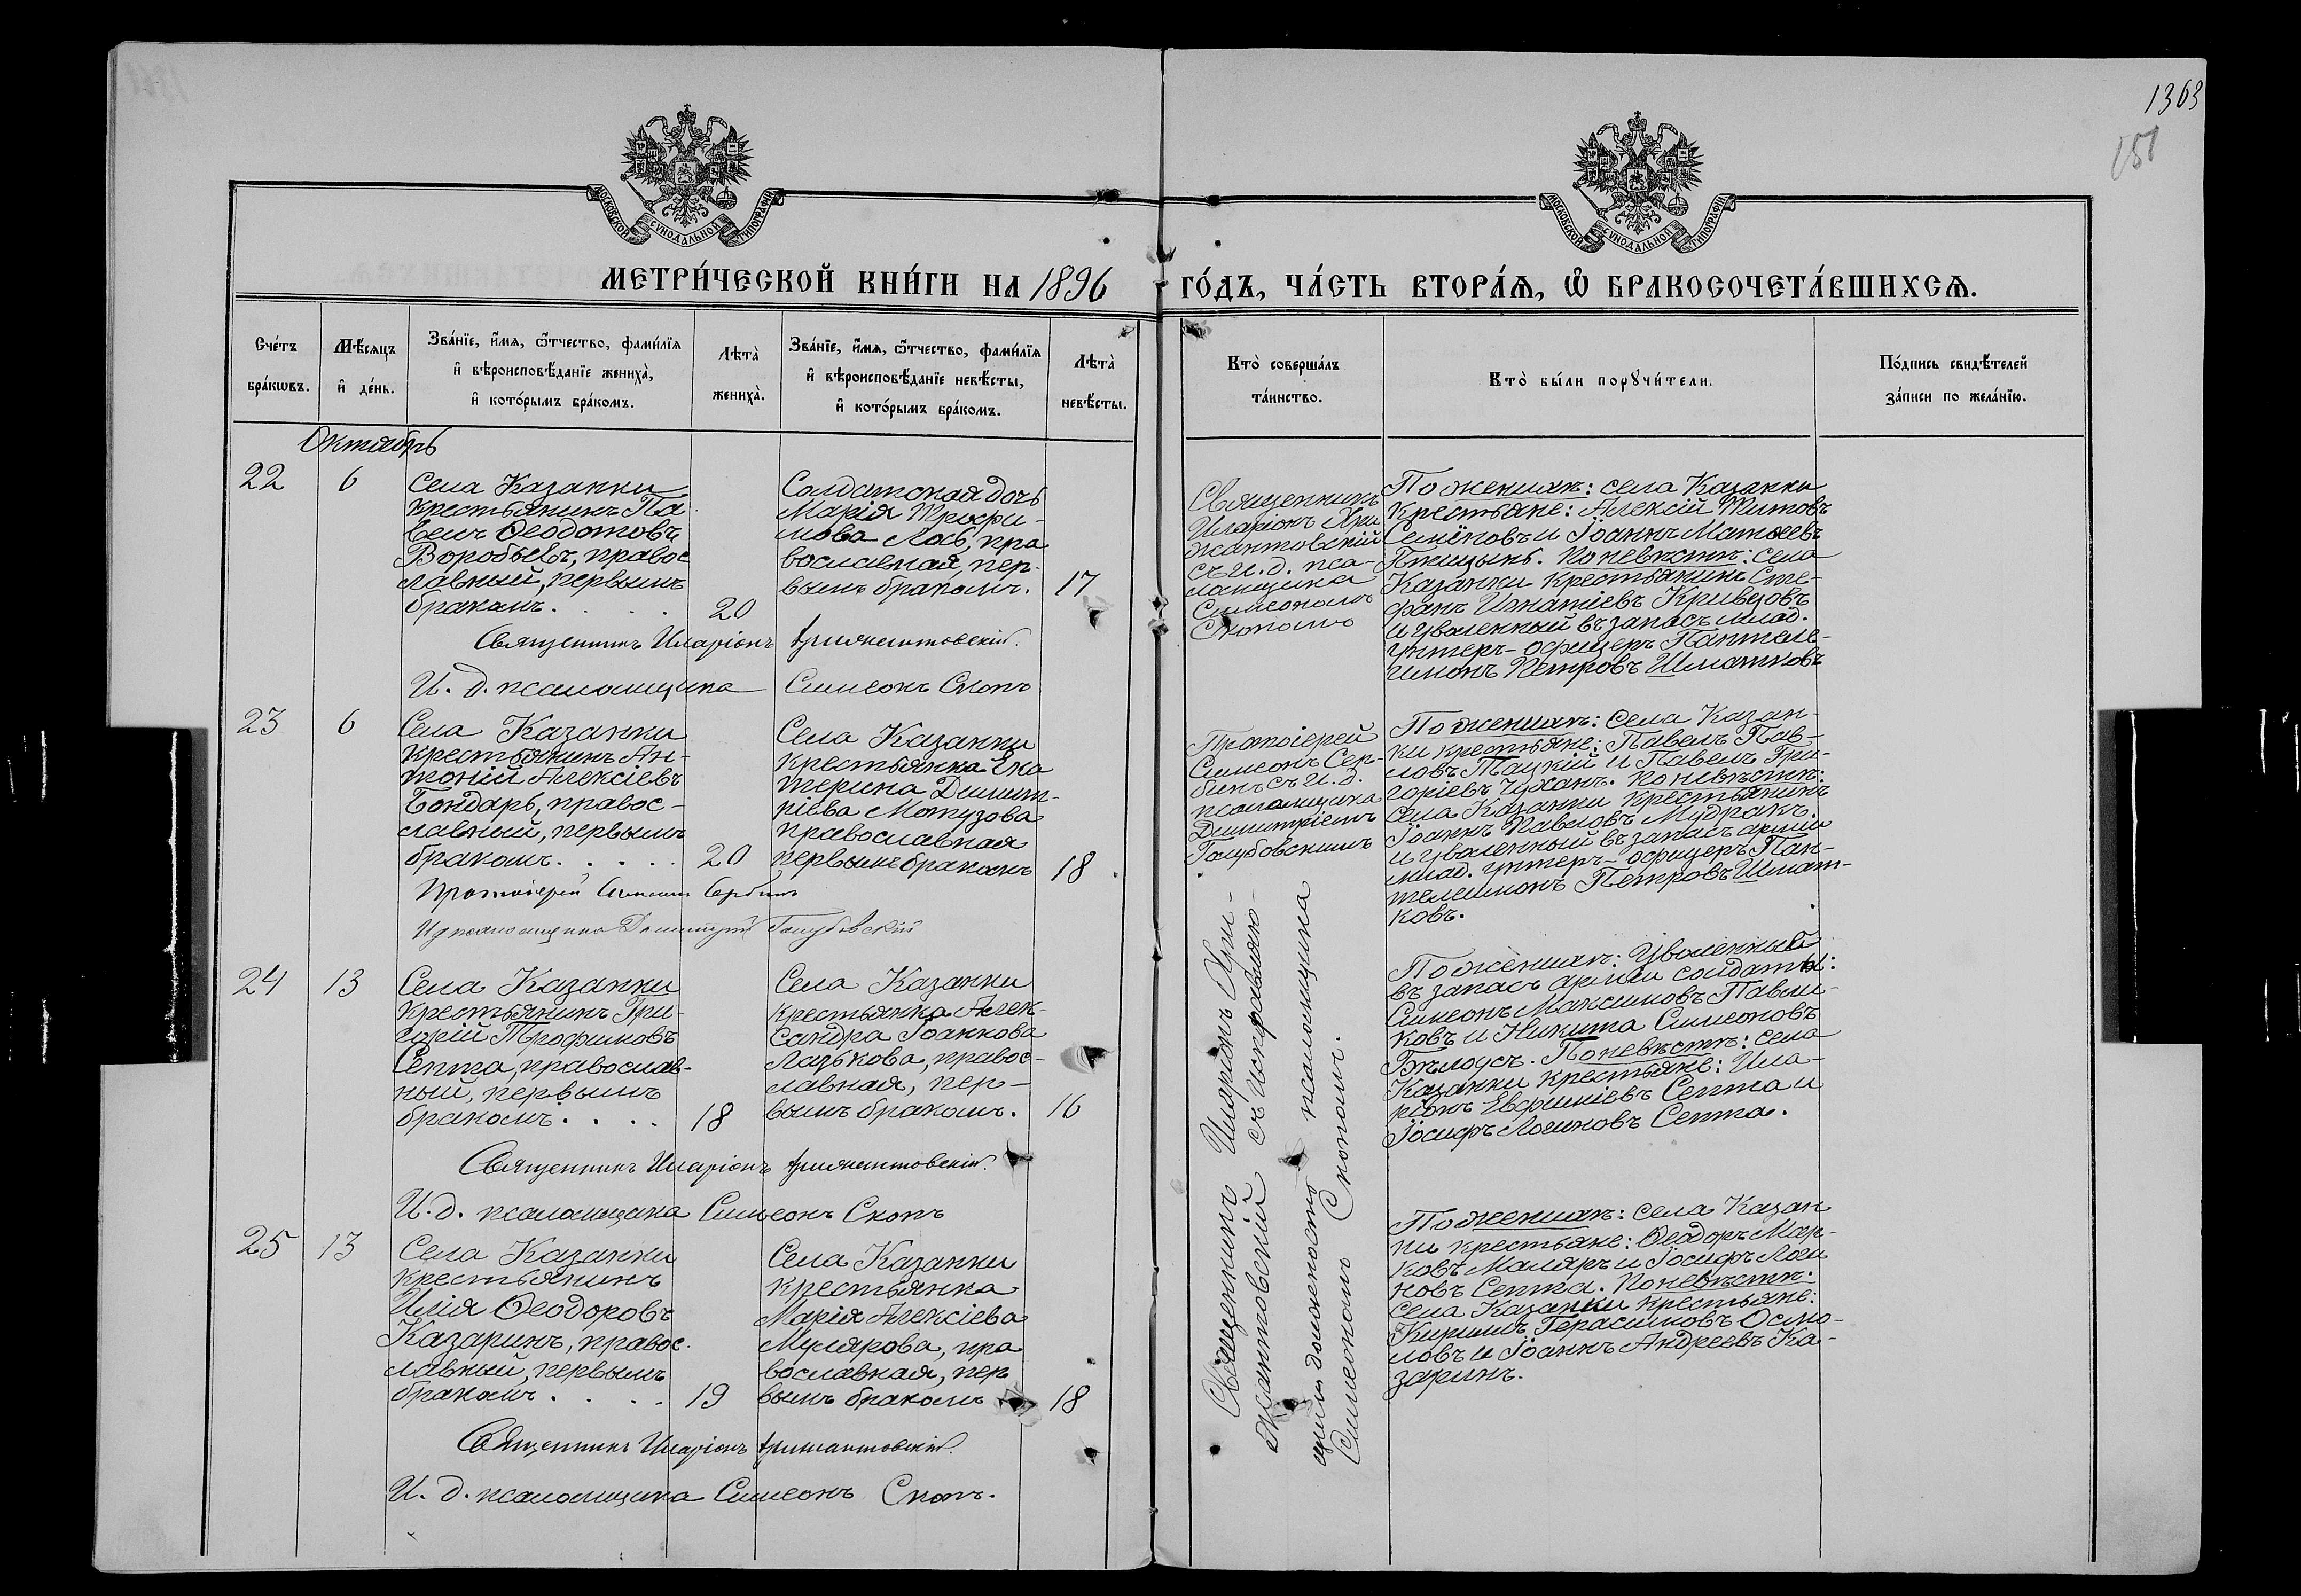 1363
151
МОСКОВСКОЙ СѴНОДАЛЬНОЙ ТИПОГРАФІИ
МОСКОВСКОЙ СѴНОДАЛЬНОЙ ТИПОГРАФІИ
МЕТРИ́ЧЕСКОЙ КНИ́ГИ НА 1896 ГО́ДЪ, ЧА́СТЬ ВТОРА́Ѧ, Ѡ҆ БРАКОСОЧЕТА́ВШИХСѦ.
Сче́тъ бра́кѡвъ.
Мѣ́сяцъ и҆ де́нь.
Зва́нїе, и҆́мя, ѻ҆́тчество, фами́лїя
и҆ вѣроисповѣ́данїе жениха̀,
и҆ кото́рымъ бра́комъ.
Лѣта̀ жениха̀.
Зва́нїе, и҆́мя, ѻ҆́тчество, фами́лїя
и҆ вѣроисповѣ́данїе невѣ́сты,
и҆ кото́рымъ бра́комъ.
Лѣта̀ невѣ́сты.
Кто̀ соверша́лъ та́инство.
Кто̀ бы́ли порꙋчи́тели.
По́дпись свидѣ́телей за́писи по жела́нїю.
Октябрь
22
6
Села Казанки
крестьянинъ Па
велъ Ѳеодотовъ
Воробьевъ, правос
лавный, первымъ
бракомъ. . . .
20
Солдатская дочь
Марія Трофи-
мова Лось, пра
вославная, пер-
вымъ бракомъ.
17
Священникъ
Иларіонъ Хри
жантовскій
съ и. д. пса-
ломщика
Симеономъ
Скопомъ
По женихѣ: села Казанки
крестьяне: Алексій Титовъ
Семёновъ и Іоаннъ Матѳеевъ
Птицынъ. По невѣстѣ: села
Казанки крестьянинъ Сте-
фанъ Игнатіевъ Кривцовъ
и уволенный въ запасъ млад.
унтеръ-офицеръ Пантеле-
имонъ Петровъ Шматковъ
Священникъ Иларіонъ Хрижантовскій.
И. д. псаломщика Симеонъ Скопъ
23
6
Села Казанки
крестьянинъ Ан-
тоній Алексіевъ
Бондарь, правос-
славный, первымъ
бракомъ. . . . .
20
Села Казанки
крестьянка Ека
терина Димит-
ріева Мотузова
православная
первымъ бракомъ
18
Протоіерей
Симеонъ Сер-
бинъ съ и. д.
псаломщика
Димитріемъ
Голубовскимъ
По женихѣ: села Казан-
ки крестьяне: Павелъ Пав-
ловъ Тацкій и Павелъ Гри-
горіевъ Чуханъ. По невѣстѣ:
села Казанки крестьянинъ
Іоаннъ Павловъ Мудракъ.
и уволенный въ запасъ арміи
млад. унтеръ-офицеръ Пан-
телеимонъ Петровъ Шмат-
ковъ.
Протоіерей Симеонъ Сербинъ
И д псаломщика Димитрій Голубовскій
24
13
Села Казанки
крестьянинъ Гри-
горій Трофимовъ
Септа, православ-
ный, первымъ
бракомъ. . . .
18
Села Казанки
крестьянка Алек-
сандра Іоаннова
Лазькова, правос-
лавная, пер-
вымъ бракомъ.
16
Священникъ Иларіонъ Хри-
жантовскій съ исправляю-
щимъ должность псаломщика
Симеономъ Скопомъ.
По женихѣ: Уволенный
въ запасъ арміи солдаты:
Симеонъ Максимовъ Павли-
ковъ и Никита Симеоновъ
Бѣлоусъ. По невѣстѣ: села
Казанки крестьяне: Ила-
ріонъ Евфиміевъ Септа и
Іосифъ Логиновъ Септа.
Священникъ Иларіонъ Хрижантовскій.
И. д. псаломщика Симеонъ Скопъ
25
13
Села Казанки
крестьянинъ
Илія Ѳеодоровъ
Казаринъ, правос.
лавный, первымъ
бракомъ . . . .
19
Села Казанки
крестьянка
Марія Алексіева
Мулярова, пра
вославная, пер
вымъ бракомъ
18
По женихѣ: села Казан
ки крестьяне: Ѳеодоръ Мар-
ковъ Маляръ и Іосифъ Логи
новъ Септа. По невѣстѣ.
села Казанки крестьяне:
Кириллъ Герасимовъ Осмо-
ловъ и Іоаннъ Андреевъ Ка-
заринъ.
Священникъ Иларіонъ Хрижантовскій.
И. д. псаломщика Симеонъ Скопъ.